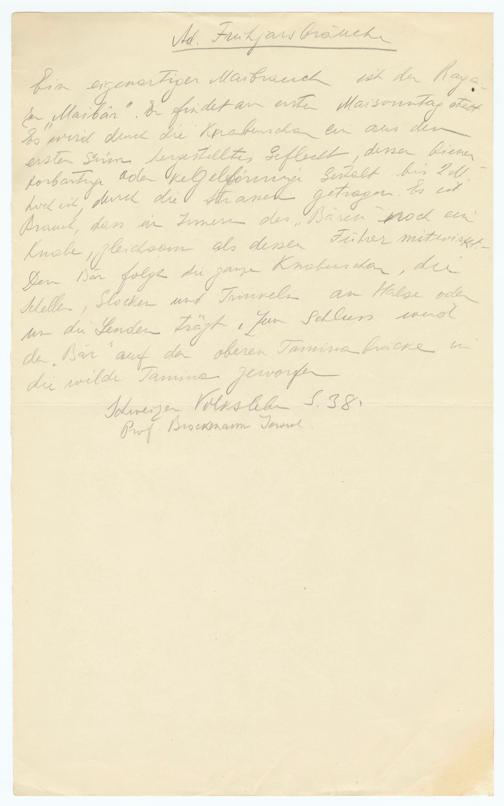 Ad. Frühjarsbräuche
Ein eigenartiger Maibrauch ist der Raga-
zer "Maibär". Er findet am ersten Maisonntag statt
Es wird durch die Knabenschar ein aus dem
ersten Grün hergestelltes Geflecht, dessen
korbartige oder kegelförmige Gestalt bis 2 M.
hoch ist durch die Strassen getragen. Es ist
Brauch, dass im Innern des "Bären" noch ein
Knabe, gleichsam als dessen Führer mitwirkt.
Dem Bär folgt die ganze Knabenschar, die
Schellen, Glocken und Trinneln am Halse oder
um die Lenden trägt, Zum Schluss wird
der "Bär" auf der oberen Taminabrücke in
die wilde Tamina geworfen
Schweizer Volksleben S. 38.
Prof Brockmann